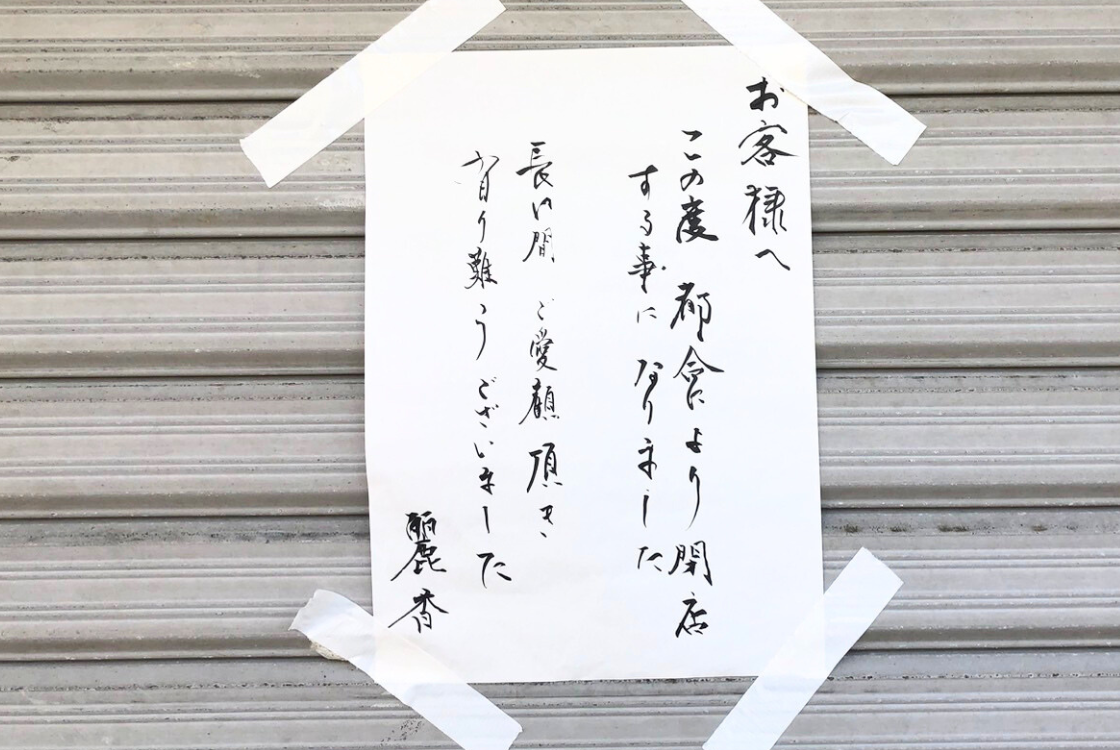 お客様へ
この度 都合により 閉店
する事に なりました
長い間 ご愛顧 頂き
有り難う ございました
麗香